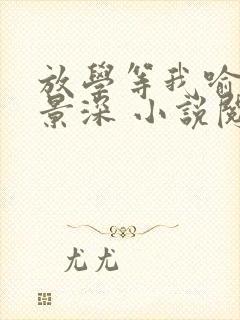 放學等我喻
景深 小說閱
尤尤